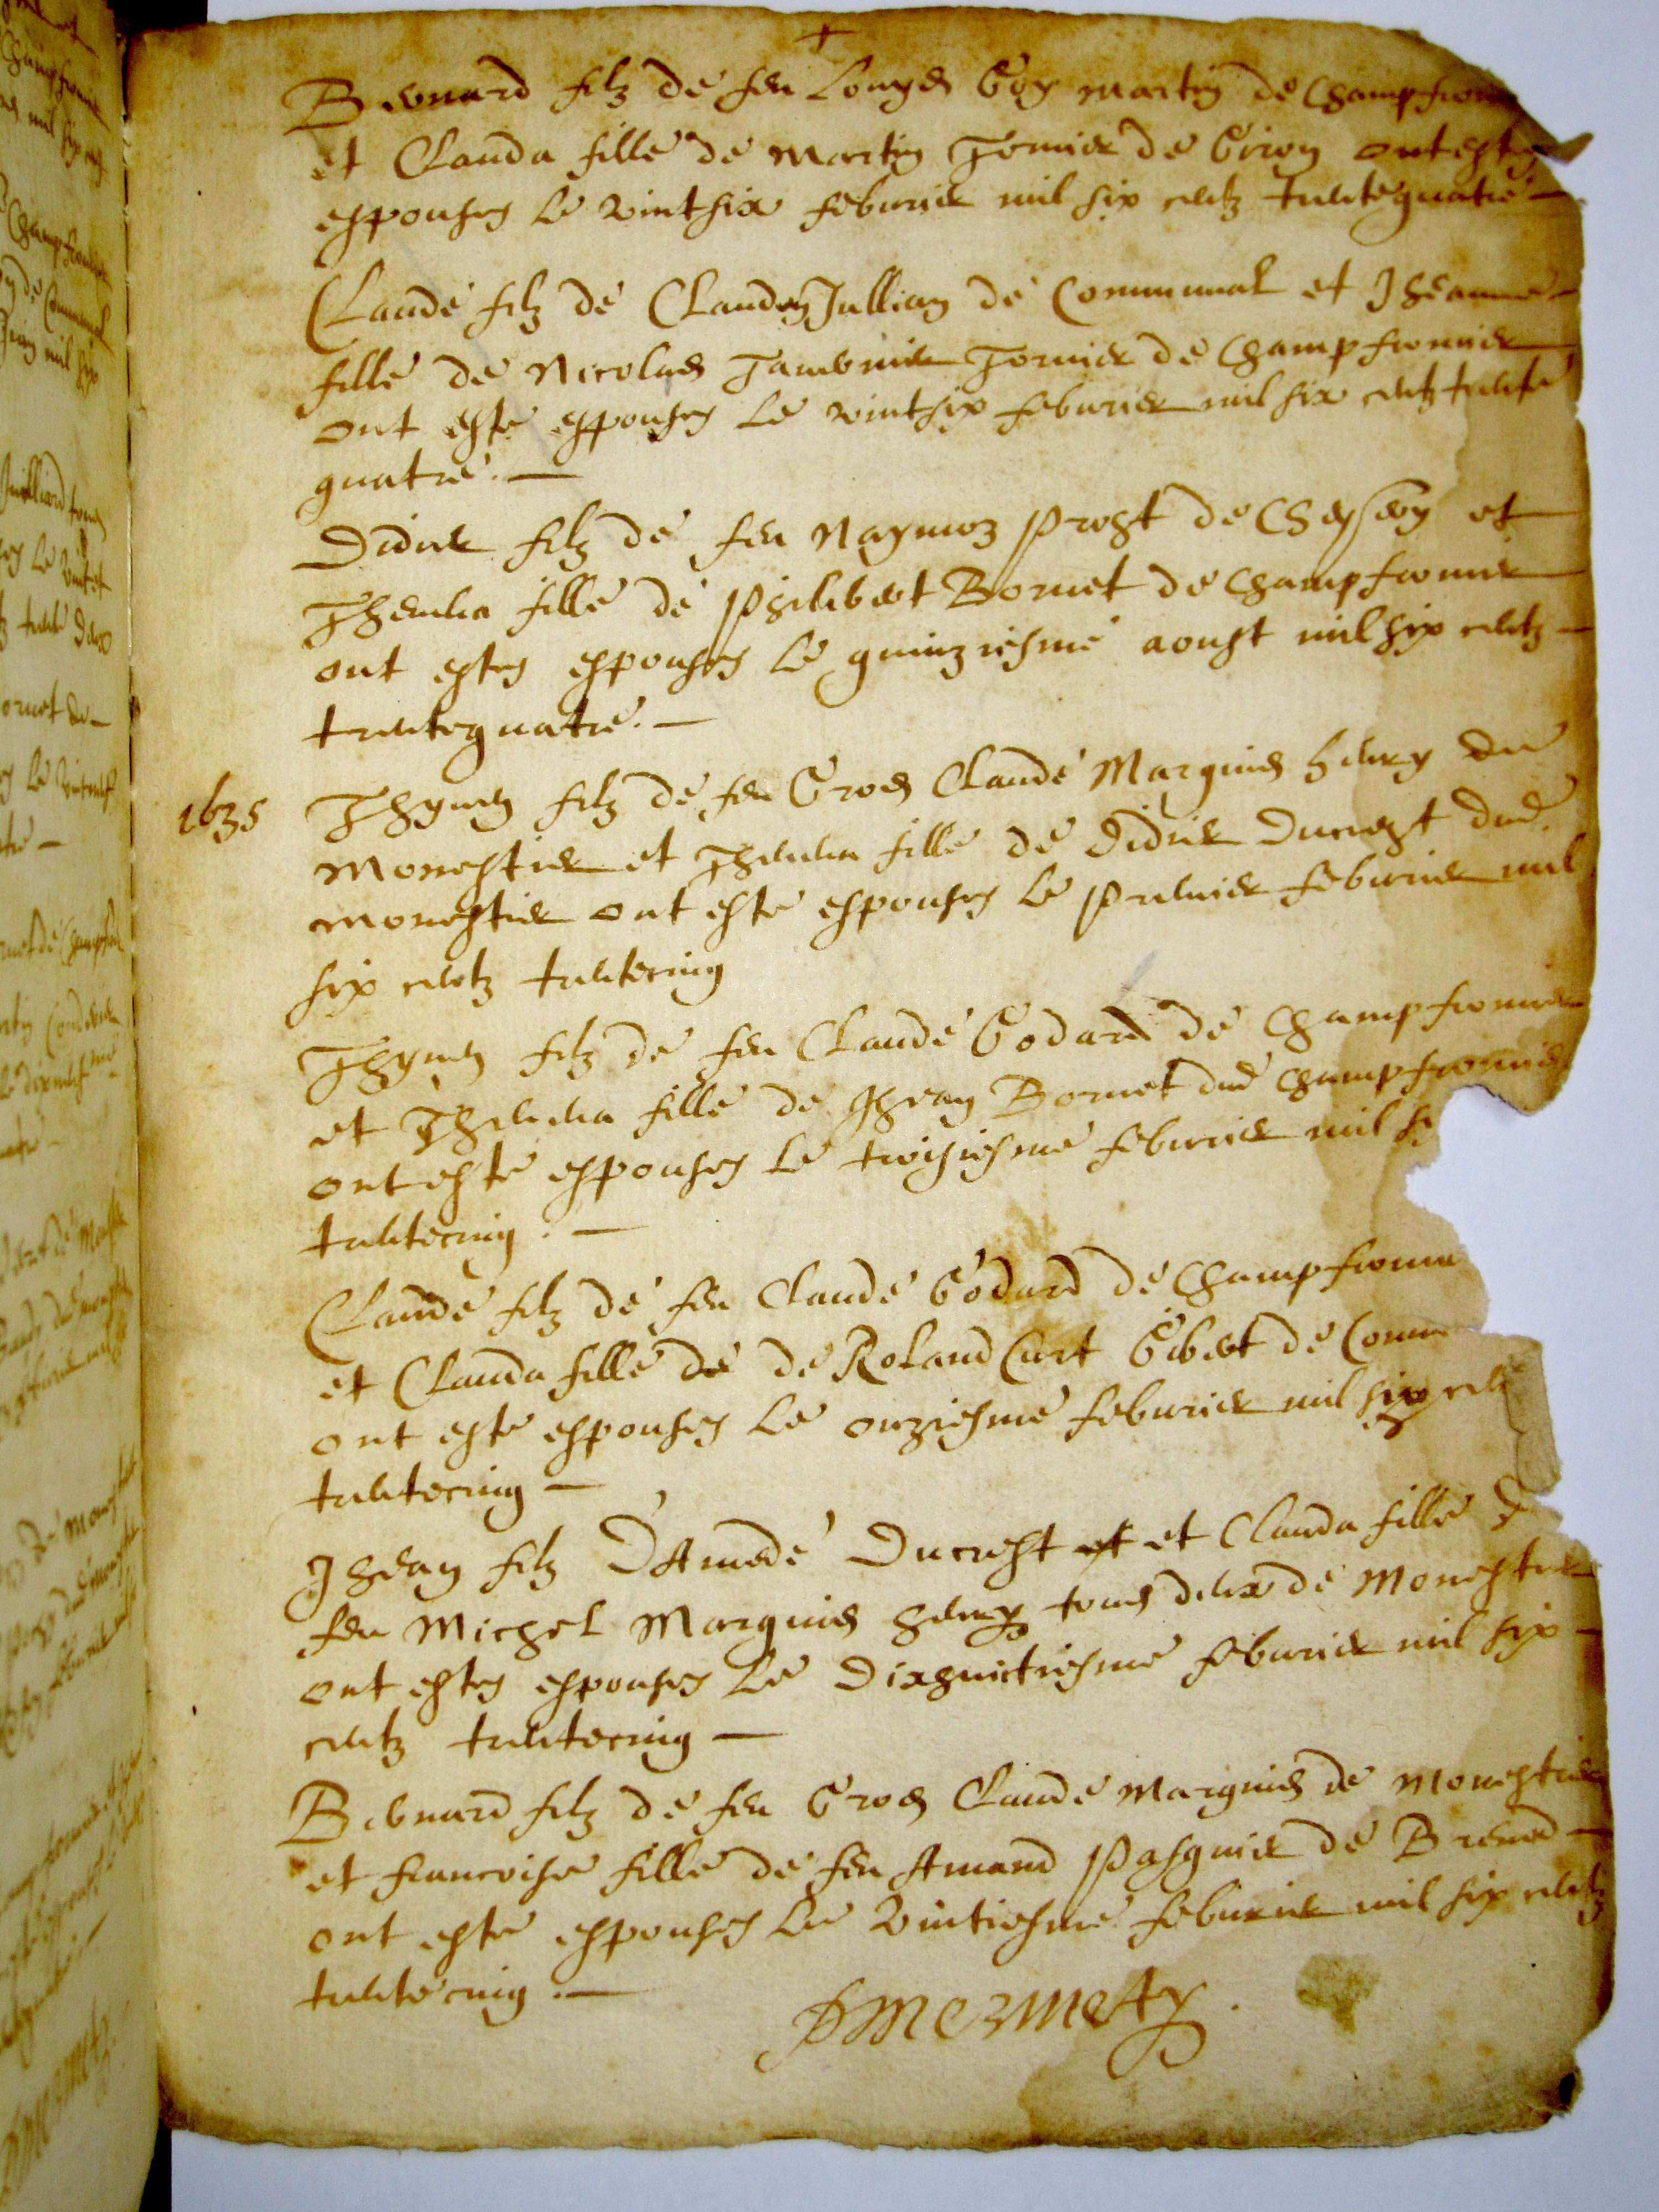 Bernard filz de feu Louys Goy Martin de Champfro
et Clauda fille de Martin Tornier de Giron ont estes
espouses le vintsix feburier mil six centz trentequatre
Claude filz de Claude Jullian de Communal et Jheanne
fille de Nicolas Tavernier Tornier de Champfromier
ont este espouses le vintsix feburier mil six centz trente
quatre
Didier filz de feu Naymoz Prost de Chesery et
Thevena fille de Philibert Bornet de Champfromier
ont estes espouses le quinziesme aoust mil six centz
trentequatre
1635
Thyven filz de feu Gros Claude Marquis Henry de
Monestier et Thevena fille de Didier Ducrest dud
Monestier ont este espouses le premier feburier mil
six centz trentecinq
Thyven filz de feu Claude Godard de Champfromier
et Thevena fille de Jhean Bornet dud Champfromier
ont este espouses le troisiesme feburier mil s
trentecinq
Claude filz de feu Claude Godard de Champfromi
et Clauda fille de de Roland Curt Gibert de Comm
ont este espouses le onziesme feburier mil six cen
trentecinq
Jhean filz D'Amede Ducrest et et Clauda fille d
feu Michel Marquis Henry tous deux de Monestier
ont estes espouses le dixhuictiesme feburier mil six
centz trentecinq
Bernard filz de feu Gros Claude Marquis de Monestier
et Francoise fille de feu Amand Pasquier de Brenod
ont este espouses le vintiesme feburier mil six centz
trentecinq
Mermety